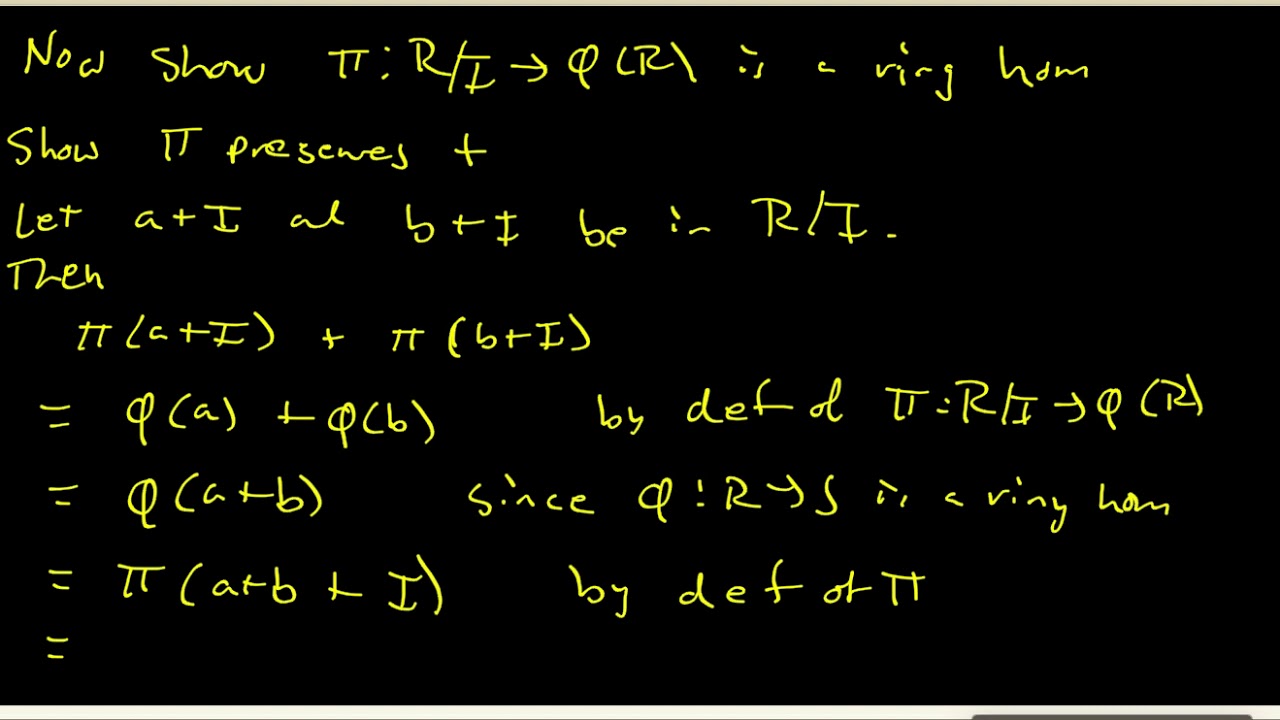 Now show π: R/I → φ(R) is a ring hom
Show π preserves +
Let a+I ad b+I be in R/I.
Then
π(a+I) + π(b+I)
= φ(a) + φ(b) by def of π: R/I → φ(R)
= φ(a+b) since φ: R → S is a ring hom
= π(a+b + I) by def of π
=